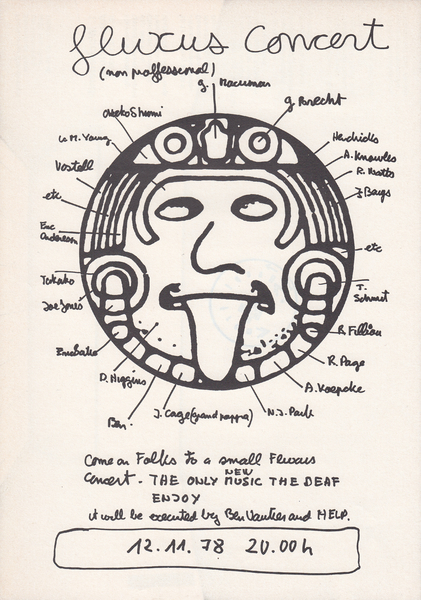 fluxus Concert
(non proffessional)
g. Macunias
OssokoShiomi
g. Brecht
La M. Young
Hendricks
A. Knowles
R. Watts
Vostell
J. Beuys
etc
Eric
Andersen
etc
Takako
T.
Schmit
Joe Jones
R. Filliou
Emo Balla
R. Page
D. Higgins
A. Koepcke
J. Cage (grand pappa)
N.J. Paik
Ben.
Come on Folks to a small Fluxus
Concert - THE ONLY NEW MUSIC THE DEAF
ENJOY
it will be executed by Ben Vautier and HELP.
12.11.78 20.00h